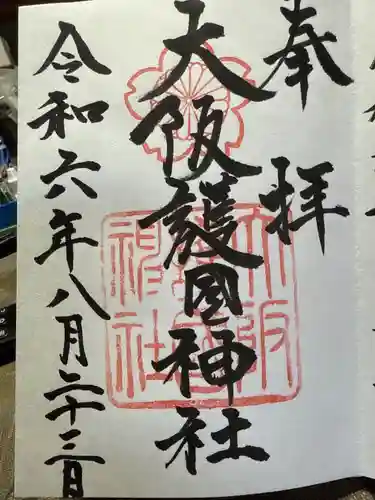 奉拝
大阪護國神社
令和六年八月二十三日